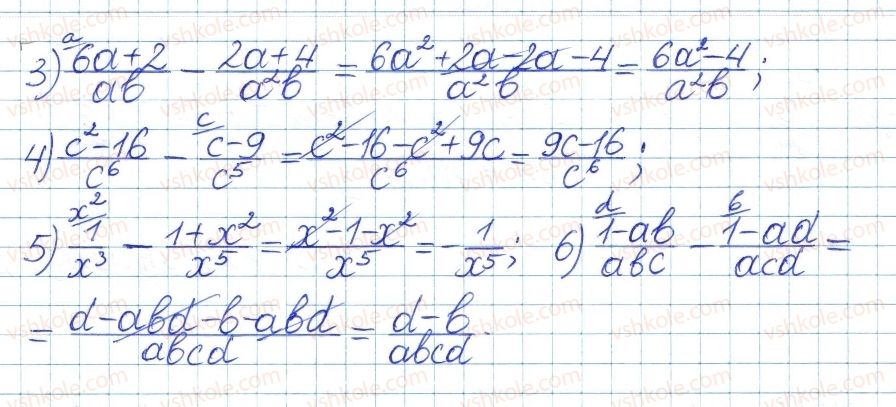 3) ᵃ⁄ (6a+2)/(ab) − (2a+4)/(a²b) = (6a²+2a−2a−4)/(a²b) = (6a²−4)/(a²b);
4) (c²−16)/c⁶ − ᶜ⁄ (c−9)/c⁵ = (c²−16−c²+9c)/c⁶ = (9c−16)/c⁶;
5) ˣ²⁄ 1/x³ − (1+x²)/x⁵ = (x²−1−x²)/x⁵ = −1/x⁵; 6) ᵈ⁄ (1−ab)/(abc) − ᵇ⁄ (1−ad)/(acd) =
= (d−abd−b−abd)/(abcd) = (d−b)/(abcd).